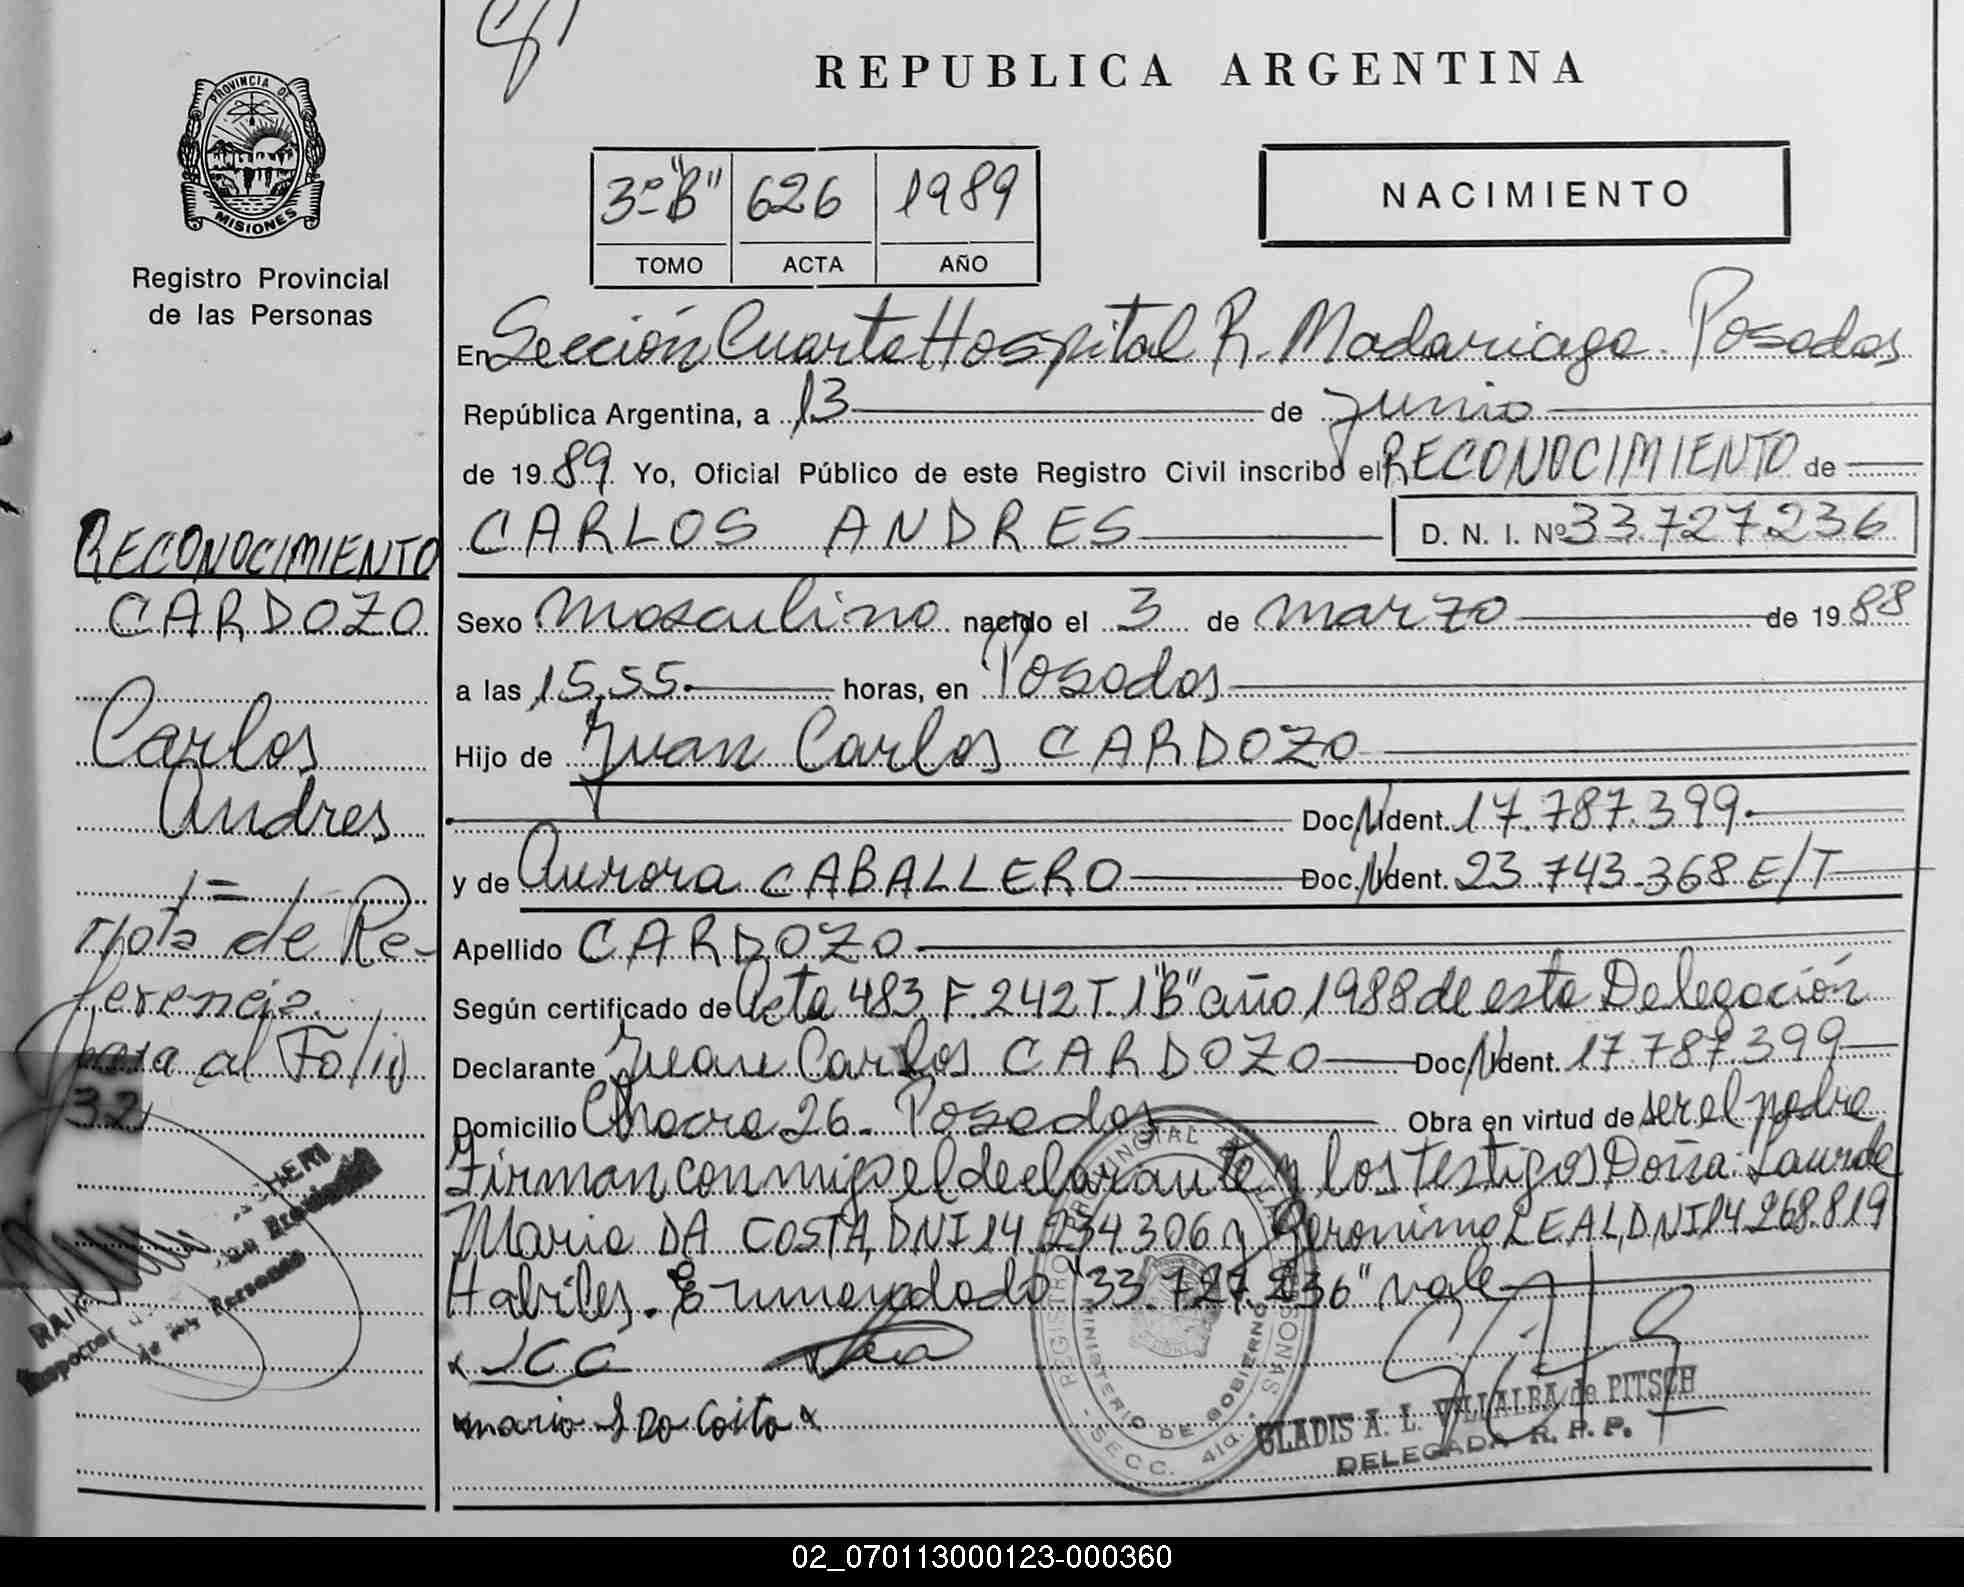 REPUBLICA ARGENTINA
PROVINCIA DE
MISIONES
Registro Provincial
de las Personas
3º "B" 626 1989
TOMO ACTA AÑO
NACIMIENTO
En Sección Cuarta Hospital R. Madariaga. Posadas
República Argentina, a 13 de junio
de 1989 Yo, Oficial Público de este Registro Civil inscribo el RECONOCIMIENTO de
CARLOS ANDRES D. N. I. Nº 33.727.236
Sexo masculino nacido el 3 de marzo de 1988
a las 15,55. horas, en Posadas
Hijo de Juan Carlos CARDOZO
Doc. Ident. 17.787.399.
y de Aurora CABALLERO Doc. Ident. 23.743.368 E/T
Apellido CARDOZO
Según certificado de Acta 483 F. 242 T. 1 "B" año 1988 de esta Delegación
Declarante Juan Carlos CARDOZO Doc. Ident. 17.787.399
Domicilio Chacra 26. Posadas Obra en virtud de ser el padre
Firman conmigo el declarante y los testigos Doña: Laurde
Maria DA COSTA, DNI 14.234.306 y Geronimo LEAL, DNI 14.268.819
Habiles. Enmendado "33.727.236" vale
JCC
maria L Da Coita
REGISTRO PROVINCIAL DE LAS PERSONAS
MINISTERIO DE GOBIERNO
- SECC. 4ta. -
GLADIS A. L. VILLALBA de PITSCH
DELEGADA R. P. P.
RECONOCIMIENTO
CARDOZO
Carlos
Andres
1=
Nota de Re-
ferencia
para al Folio
32
Inspector
de las Personas
02_070113000123-000360